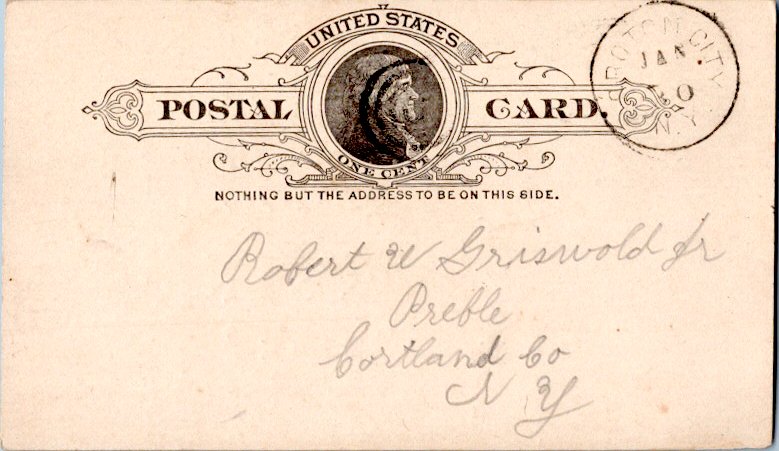 UNITED STATES
POSTAL CARD.
ONE CENT
NOTHING BUT THE ADDRESS TO BE ON THIS SIDE.
GROTON CITY
JAN
N.Y.
Robert W Griswold Jr
Preble
Cortland Co
N Y